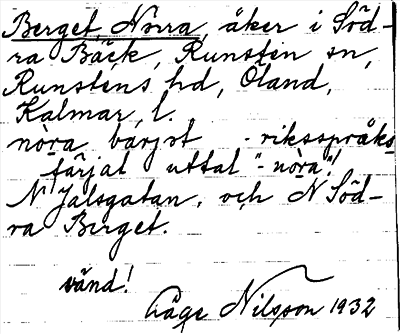 Berget, Norra, åker i Söd-
ra Bäck, Runsten sn,
Runstens hd, Öland,
Kalmar l.
nòra bärjət - riksspråks-
färjat uttal "-nòra"!
N Jalsgatan. och N Söd-
ra Berget.
vänd!
Åge Nilsson 1932